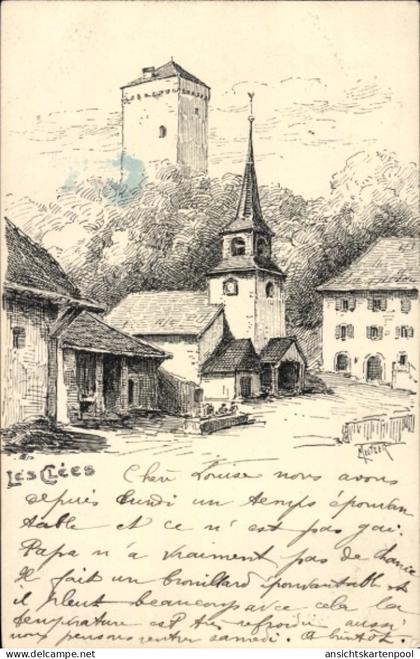 Mutzer
Les Clées
Chère Louise nous avons
depuis lundi un temps épouvan
table et ce n'est pas gai.
Papa n'a vraiment pas de chance
Il fait un brouillard épouvantable et
il pleut beaucoup avec cela la
température est très refroidie aussi
nous pensons rentrer samedi. A bientôt.
ansichtskartenpool